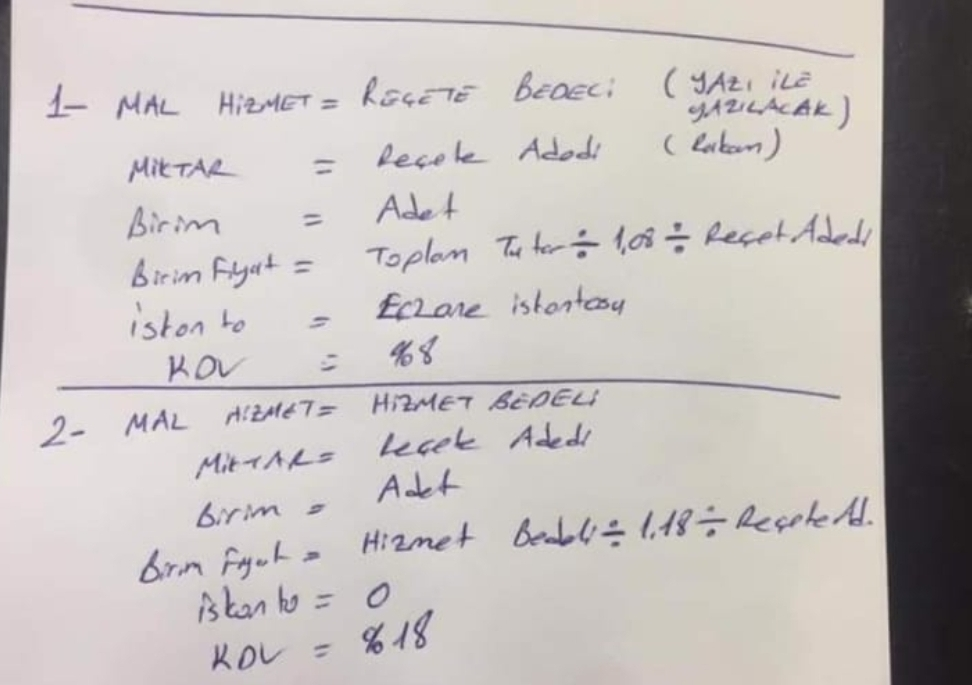 1- MAL HİZMET = REÇETE BEDELİ (YAZI İLE YAZILACAK)
MİKTAR = Reçete Adedi (Rakam)
Birim = Adet
Birim Fiyat = Toplam Tutar ÷ 1,08 ÷ Reçet Adedi
iskonto = Eczane iskontosu
KDV = %8
2- MAL HİZMET = HİZMET BEDELİ
MİKTAR = Reçete Adedi
Birim = Adet
Birim Fiyat = Hizmet Bedeli ÷ 1.18 ÷ Reçete Ad.
iskonto = 0
KDV = %18